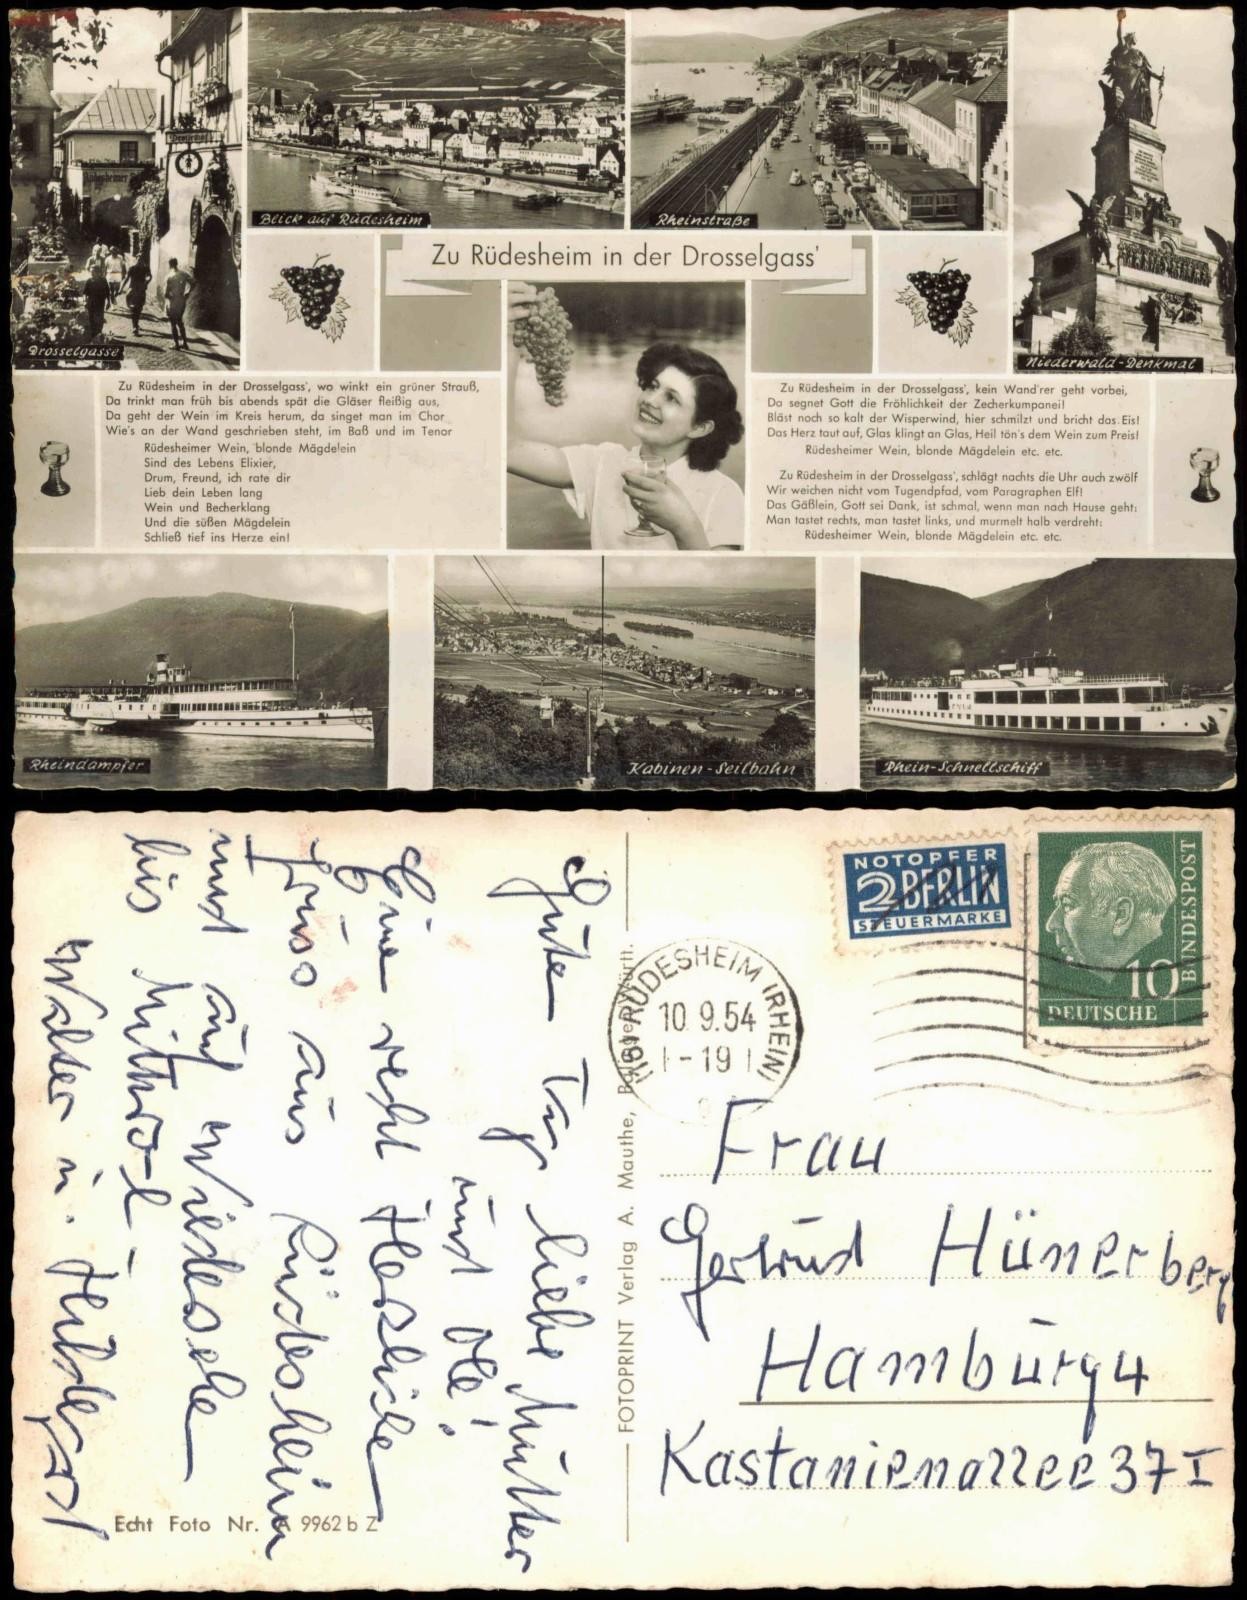 Drosselgasse
Blick auf Rüdesheim
Rheinstraße
Niederwald-Denkmal
Zu Rüdesheim in der Drosselgass'
Zu Rüdesheim in der Drosselgass', wo winkt ein grüner Strauß,
Da trinkt man früh bis abends spät die Gläser fleißig aus,
Da geht der Wein im Kreis herum, da singet man im Chor
Wie's an der Wand geschrieben steht, im Baß und im Tenor
Rüdesheimer Wein, blonde Mägdelein
Sind des Lebens Elixier,
Drum, Freund, ich rate dir
Lieb dein Leben lang
Wein und Becherklang
Und die süßen Mägdelein
Schließ tief ins Herze ein!
Zu Rüdesheim in der Drosselgass', kein Wand'rer geht vorbei,
Da segnet Gott die Fröhlichkeit der Zecherkumpanei!
Bläst noch so kalt der Wisperwind, hier schmilzt und bricht das Eis!
Das Herz taut auf, Glas klingt an Glas, Heil tön's dem Wein zum Preis!
Rüdesheimer Wein, blonde Mägdelein etc. etc.
Zu Rüdesheim in der Drosselgass', schlägt nachts die Uhr auch zwölf
Wir weichen nicht vom Tugendpfad, vom Paragraphen Elf!
Das Gäßlein, Gott sei Dank, ist schmal, wenn man nach Hause geht:
Man tastet rechts, man tastet links, und murmelt halb verdreht:
Rüdesheimer Wein, blonde Mägdelein etc. etc.
Rheindampfer
Kabinen-Seilbahn
Rhein-Schnellschiff
Guten Tag liebe Mutter
und Ole!
Eine recht Herzliche
Grüss aus Rüdesheim
und auf Wiedersehe
bis Mittwo-
Walter u.
Echt Foto Nr. A 9962 b Z
FOTOPRINT Verlag A. Mauthe,
NOTOPFER
2 BERLIN
STEUERMARKE
10
DEUTSCHE
BUNDESPOST
(16) RÜDESHEIM (RHEIN)
10.9.54
-19
Frau
Gertrud Hünerberg
Hamburg 4
Kastanienallee 37 I